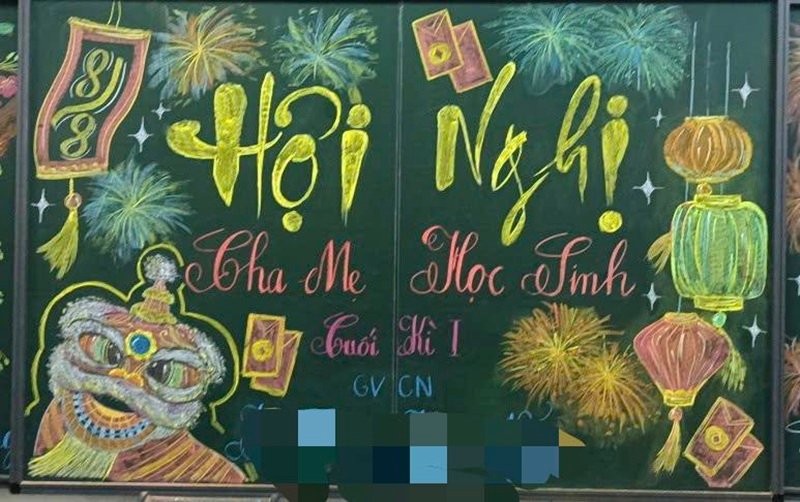 8/8
Hội Nghị
Cha Mẹ Học Sinh
Cuối Kì I
GVCN